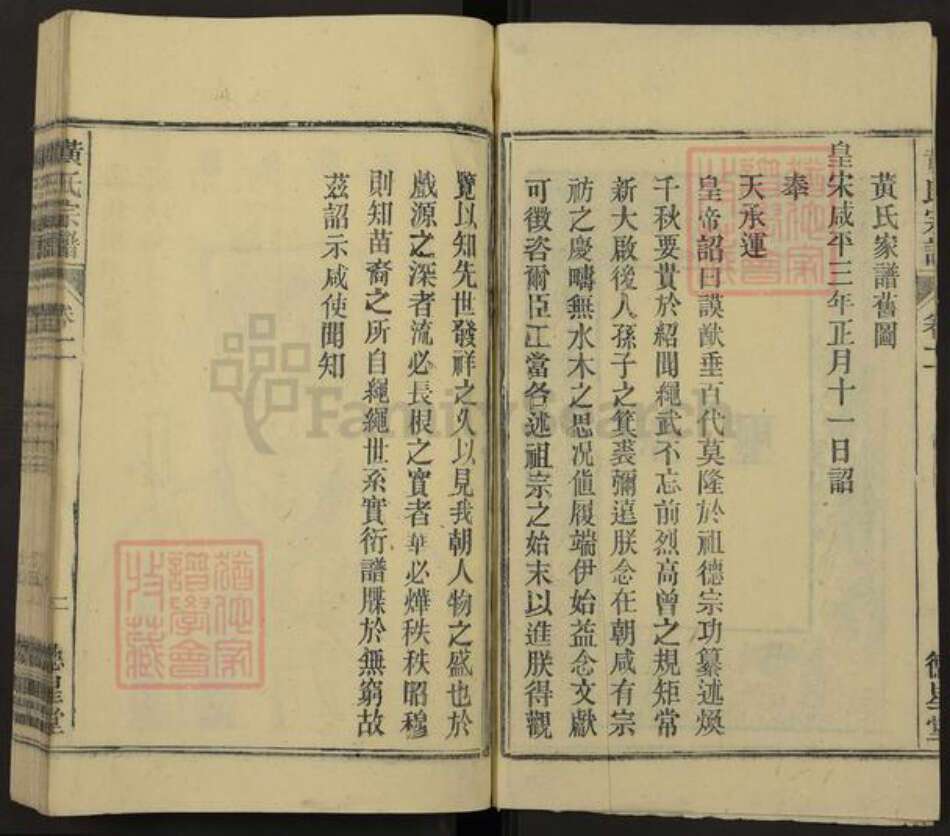 黃氏家譜舊圖
皇宋咸平三年正月十一日詔
奉
天承運
皇帝詔曰謨猷垂百代莫隆於祖德宗功纂述煥
千秋要貴於紹聞繩武不忘前烈高曾之規矩常
新大啟後人孫子之箕裘彌遠朕念在朝咸有宗
祊之慶疇無水木之思況値履端伊始益念文獻
可徵咨爾臣工當各述祖宗之始末以進朕得觀
覽以知先世發祥之久以見我朝人物之盛也於
戲源之深者流必長根之實者華必燁秩秩昭穆
則知苗裔之所自繩繩世系實衍譜牒於無窮故
茲詔示咸使聞知
黃氏宗譜
卷二
二
德星堂
FamilySearch